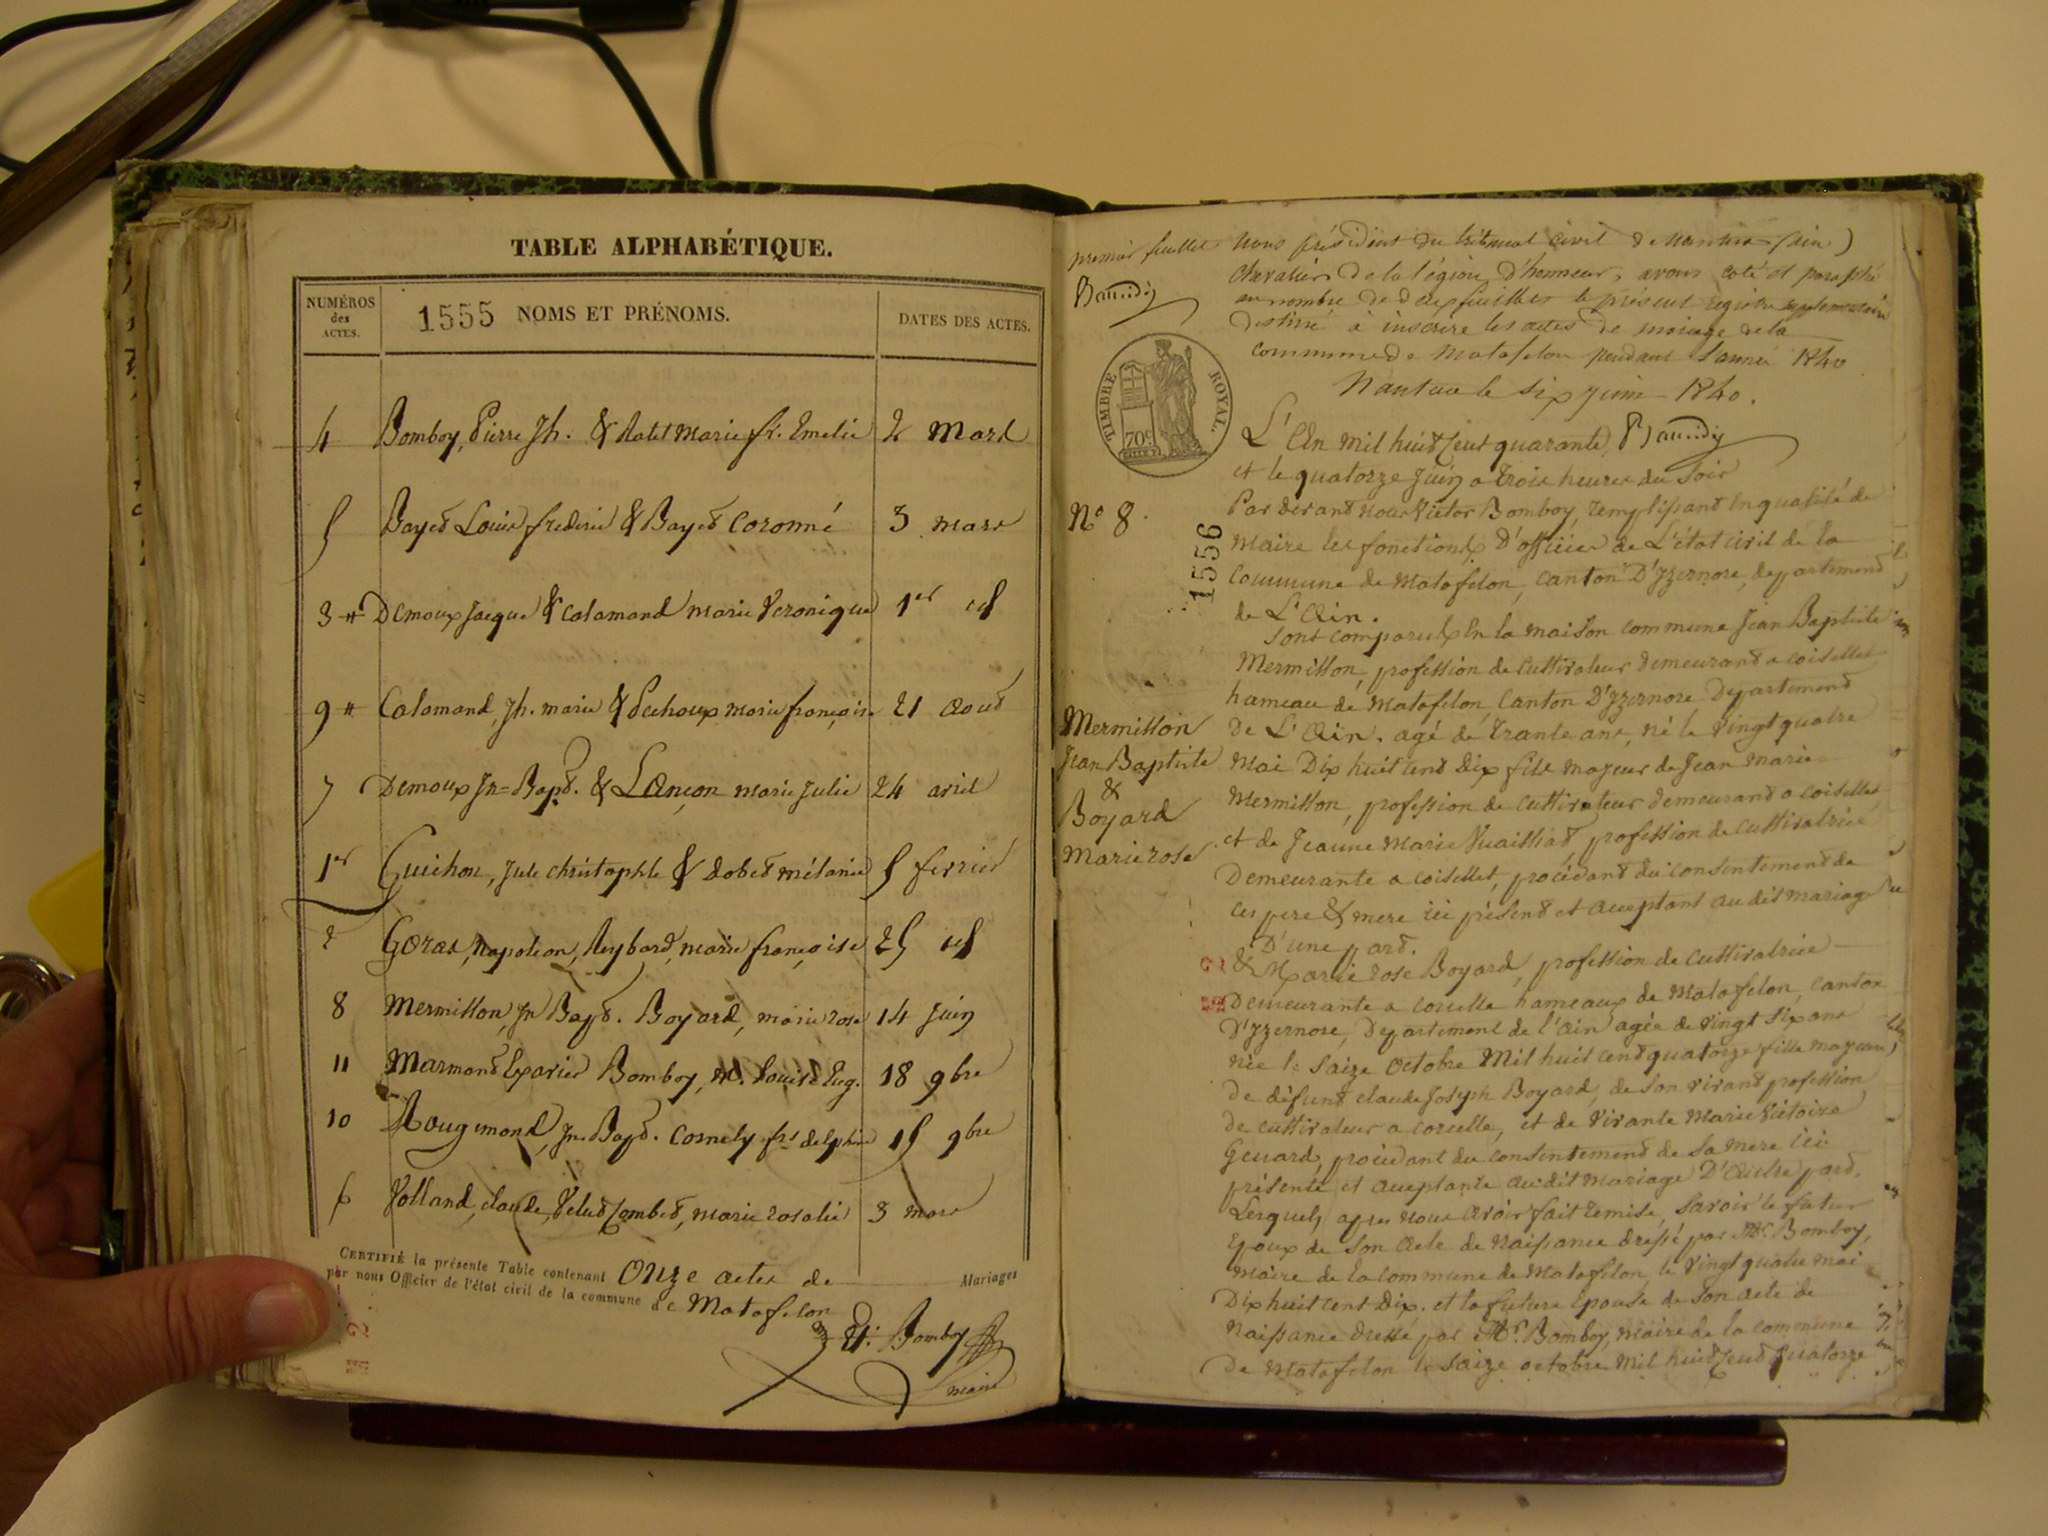 TABLE ALPHABÉTIQUE.
NUMÉROS des ACTES.
1555 NOMS ET PRÉNOMS.
DATES DES ACTES.
4 Bomboy, Pierre Jh. & Ratet Marie fse. Emelie 2 Mars
5 Bayet Louis frederic & Bayet Coronné 3 mars
3 # Demoux Jacque & Calamand marie Veronique 1er id
9 # Calamand, Jh. marie & Pechoux marie françoise 21 Aout
7 Demoux Jn= Bapt. & Lançon marie Julie 24 avril
1er Guichon, Jule christophle & Dobet mélanie 5 fevrier
2 Goras, Napoleon, Reybard, marie françoise 25 id
8 Mermillon, Jn Bapt. Boyard, marie rose 14 Juin
11 Marmont Exavier Bomboy, M. Louise Eug. 18 9bre
10 Rougemond, Jn. Bapt. Cornely fse delphine 15 9bre
6 Volland, claude, Velut Combet, marie rosalie 3 mars
CERTIFIÉ la présente Table contenant Onze actes de Mariages
par nous Officier de l'état civil de la commune de Matafelon
Vr. Bomboy
maire
premier feuillet
Nous président du tribunal civil de Nantua (ain)
chevalier de la légion d'honneur, avons coté et paraphé
au nombre de deux feuillets le présent registre supplémentaire
destiné à inscrire les actes de mariage de la
commune de Matafelon pendant l'année 1840
Nantua le six juin 1840.
TIMBRE ROYAL
70c
L'An mil huit Cent quarante,
et le quatorze Juin a trois heures du Soir
N° 8.
Par devant nous Victor Bomboy, remplissant en qualité de
1556
Maire les fonctions D'officier de L'état civil de la
commune de Matafelon, canton D'Yzernore, departement
de L'Ain.
Sont comparus En la maison commune Jean Baptiste
Mermillon, profession de cultivateur demeurant a coisellet
hameau de Matafelon, Canton D'Yzernore Departement
Mermillon
Jean Baptiste
&
Boyard
Marie rose
de L'Ain. agé de trante ans, né le vingt quatre
Mai Dix huit cent Dix fils majeur de Jean Marie
Mermillon, profession de cultivateur demeurant a coisellet
et de Jeanne Marie Vuailliat profession de cultivatrice
Demeurante a coisellet, procédant du consentement de
ces pere & mere ici présent et acceptant au dit mariage
D'une part.
& Marie rose Boyard, profession de cultivatrice
Demeurante a corcelle hameaux de Matafelon, canton
D'Yzernore, Departement de l'ain agée de vingt six ans
née le Saize Octobre Mil huit cent quatorze fille majeure
de défunt claude Joseph Boyard, de son vivant profession
de cultivateur a corcelle, et de vivante Marie Victoire
Genard, procédant du consentement de Sa mere ici
présente et acceptante au dit Mariage D'Autre part.
Lesquels, apres nous avoir fait remise, Savoir le futur
Epoux de Son Acte de Naissance dressé par Mr. Bomboy,
maire de la commune de Matafelon, le vingt quatre mai
Dix huit cent Dix. et la future Epouse de Son acte de
Naissance dressé par Mr. Bomboy, maire de la commune
de Matafelon le Saize octobre Mil huit Cent quatorze